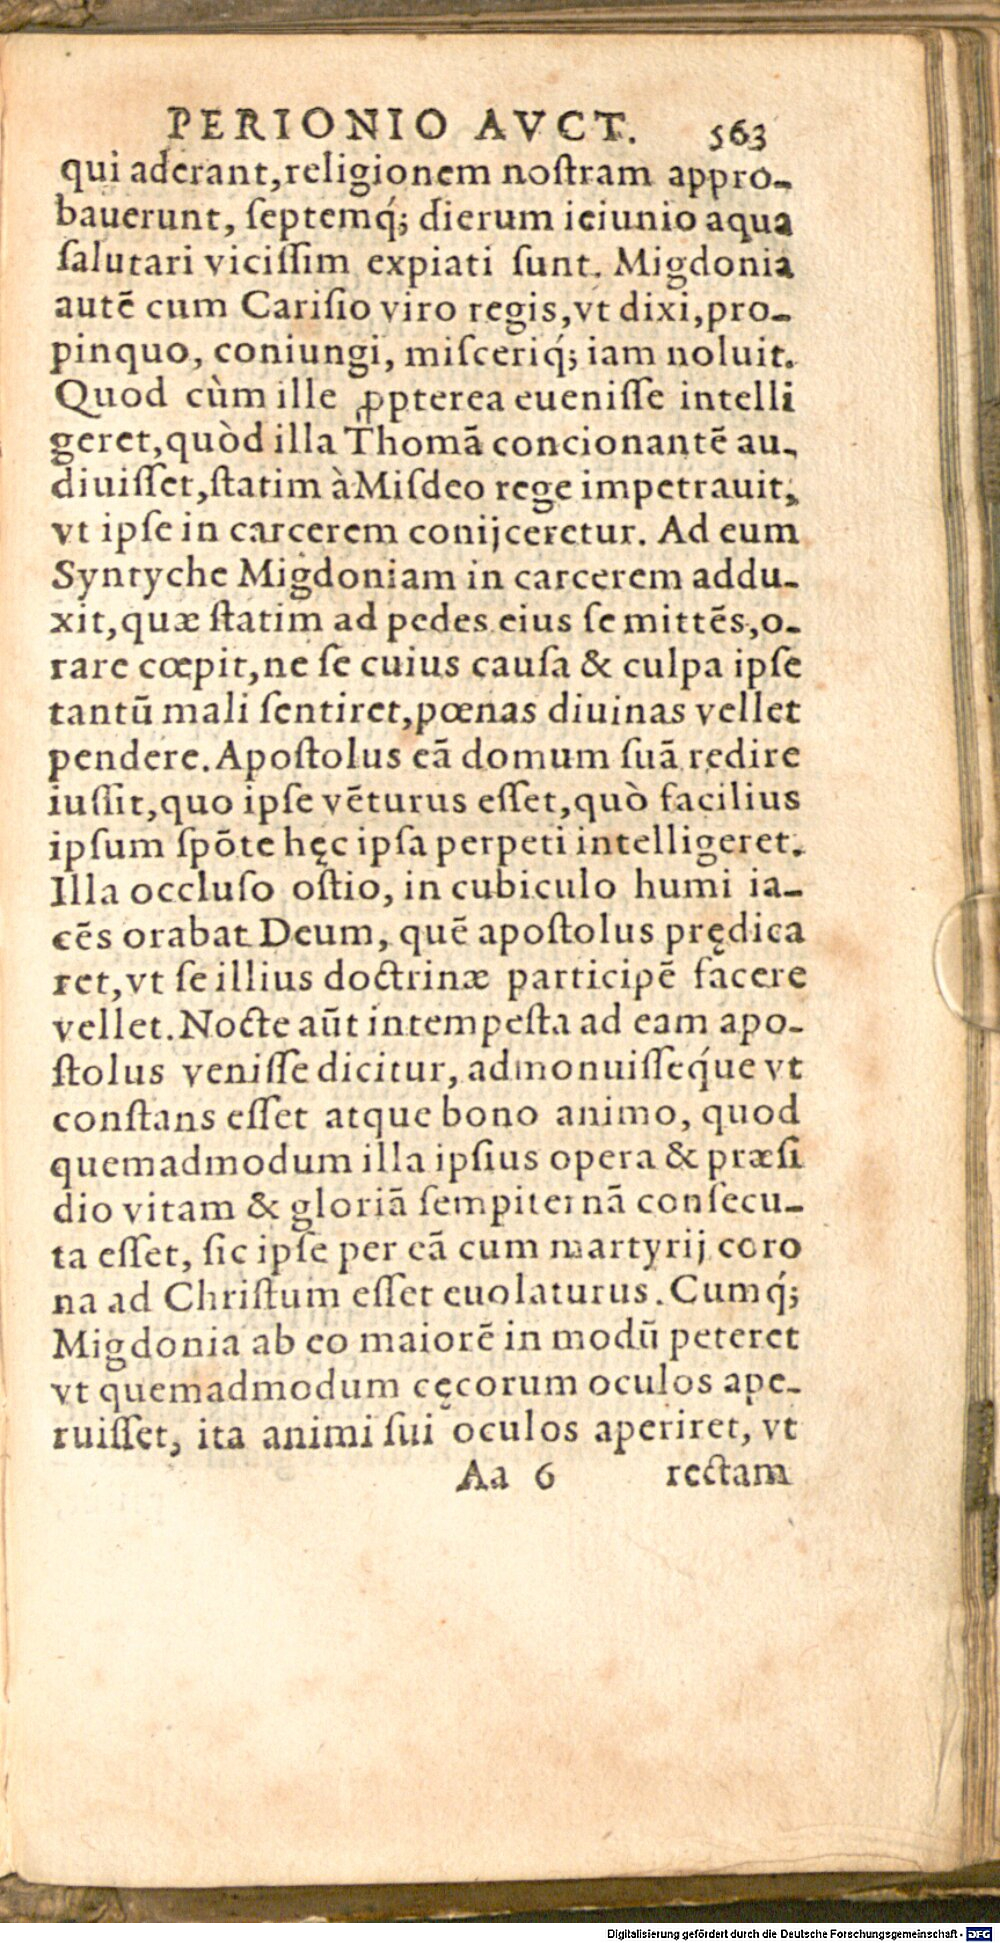 PERIONIO AVCT. 563
qui aderant,religionem noſtram appro-
bauerunt, ſeptemq́; dierum ieiunio aqua
ſalutari viciſſim expiati ſunt. Migdonia
autē cum Cariſio viro regis,vt dixi,pro-
pinquo, coniungi, miſceriq́; iam noluit.
Quod cùm ille ꝓpterea eueniſſe intelli
geret,quòd illa Thomā concionantē au-
diuiſſet,ſtatim à Miſdeo rege impetrauit,
vt ipſe in carcerem conijceretur. Ad eum
Syntyche Migdoniam in carcerem addu-
xit,quæ ſtatim ad pedes eius ſe mittēs,o-
rare cœpit,ne ſe cuius cauſa & culpa ipſe
tantū mali ſentiret,pœnas diuinas vellet
pendere.Apoſtolus eā domum ſuā redire
iuſſit,quo ipſe vēturus eſſet,quò facilius
ipſum ſpōte hęc ipſa perpeti intelligeret.
Illa occluſo oſtio, in cubiculo humi ia-
cēs orabat Deum, quē apoſtolus prędica
ret,vt ſe illius doctrinæ participē facere
vellet.Nocte aūt intempeſta ad eam apo-
ſtolus veniſſe dicitur, admonuiſſeq́ue vt
conſtans eſſet atque bono animo, quod
quemadmodum illa ipſius opera & præſi
dio vitam & gloriā ſempiternā conſecu-
ta eſſet, ſic ipſe per eā cum martyrij coro
na ad Chriſtum eſſet euolaturus. Cumq́;
Migdonia ab eo maiorē in modū peteret
vt quemadmodum cęcorum oculos ape-
ruiſſet, ita animi ſui oculos aperiret, vt
Aa 6 rectam
Digitalisierung gefördert durch die Deutsche Forschungsgemeinschaft - DFG